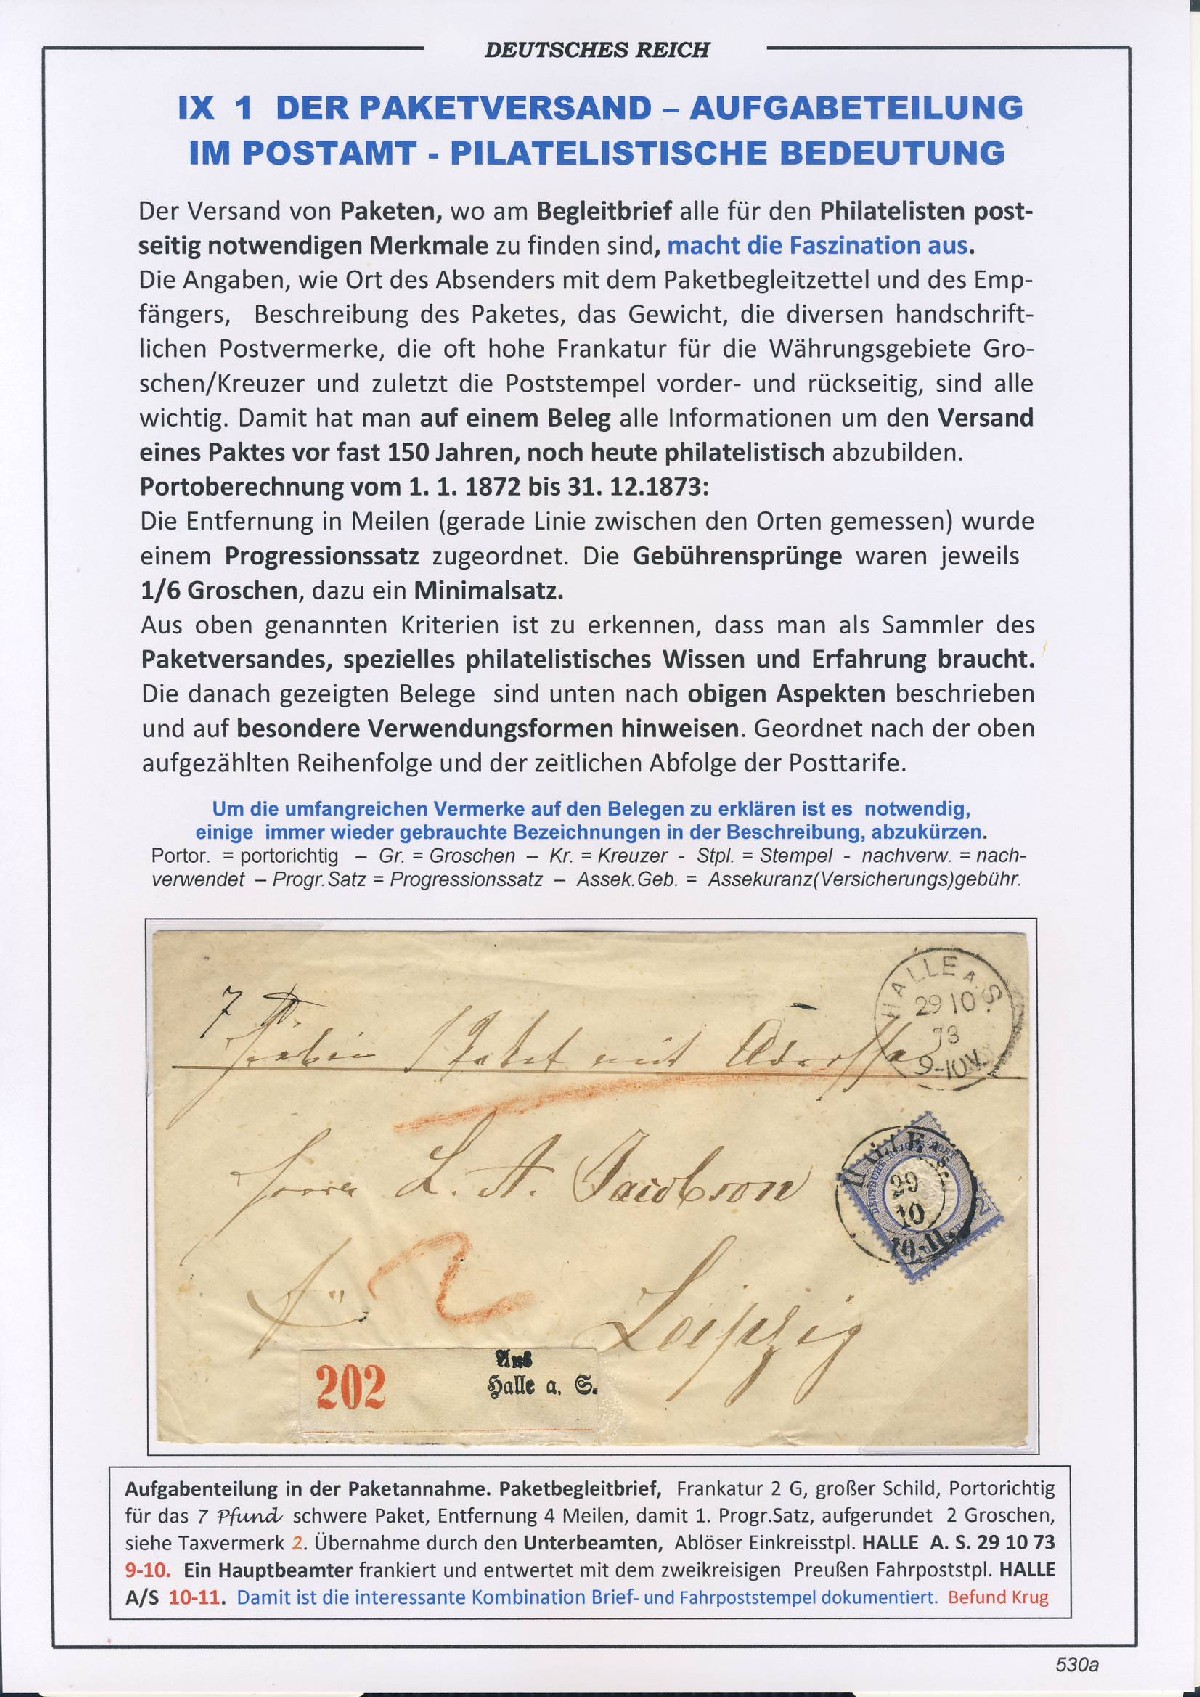 DEUTSCHES REICH
IX 1 DER PAKETVERSAND – AUFGABETEILUNG
IM POSTAMT - PILATELISTISCHE BEDEUTUNG
Der Versand von Paketen, wo am Begleitbrief alle für den Philatelisten post-
seitig notwendigen Merkmale zu finden sind, macht die Faszination aus.
Die Angaben, wie Ort des Absenders mit dem Paketbegleitzettel und des Emp-
fängers, Beschreibung des Paketes, das Gewicht, die diversen handschrift-
lichen Postvermerke, die oft hohe Frankatur für die Währungsgebiete Gro-
schen/Kreuzer und zuletzt die Poststempel vorder- und rückseitig, sind alle
wichtig. Damit hat man auf einem Beleg alle Informationen um den Versand
eines Paktes vor fast 150 Jahren, noch heute philatelistisch abzubilden.
Portoberechnung vom 1. 1. 1872 bis 31. 12.1873:
Die Entfernung in Meilen (gerade Linie zwischen den Orten gemessen) wurde
einem Progressionssatz zugeordnet. Die Gebührensprünge waren jeweils
1/6 Groschen, dazu ein Minimalsatz.
Aus oben genannten Kriterien ist zu erkennen, dass man als Sammler des
Paketversandes, spezielles philatelistisches Wissen und Erfahrung braucht.
Die danach gezeigten Belege sind unten nach obigen Aspekten beschrieben
und auf besondere Verwendungsformen hinweisen. Geordnet nach der oben
aufgezählten Reihenfolge und der zeitlichen Abfolge der Posttarife.
Um die umfangreichen Vermerke auf den Belegen zu erklären ist es notwendig,
einige immer wieder gebrauchte Bezeichnungen in der Beschreibung, abzukürzen.
Portor. = portorichtig – Gr. = Groschen – Kr. = Kreuzer - Stpl. = Stempel - nachverw. = nach-
verwendet – Progr.Satz = Progressionssatz – Assek.Geb. = Assekuranz(Versicherungs)gebühr.
HALLE A. S.
29 10
73
9-10V.
7
Paket mit
Herrn L. A. Jacobson
HALLE
29
10
10-11
2
2
Leipzig
202
Aus
Halle a. S.
Aufgabenteilung in der Paketannahme. Paketbegleitbrief, Frankatur 2 G, großer Schild, Portorichtig
für das 7 Pfund schwere Paket, Entfernung 4 Meilen, damit 1. Progr.Satz, aufgerundet 2 Groschen,
siehe Taxvermerk 2. Übernahme durch den Unterbeamten, Ablöser Einkreisstpl. HALLE A. S. 29 10 73
9-10. Ein Hauptbeamter frankiert und entwertet mit dem zweikreisigen Preußen Fahrpoststpl. HALLE
A/S 10-11. Damit ist die interessante Kombination Brief- und Fahrpoststempel dokumentiert. Befund Krug
530a